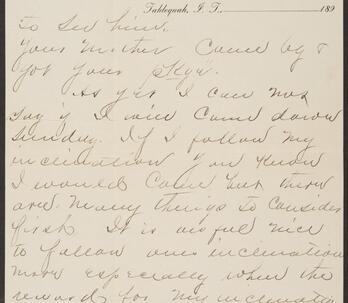 Tahlequah, I. T. 189
to see him.
Your mother came by &
got your pkg.
As yet I can not
say if I will come down
Sunday. If I follow my
inclination you know
I would come but there
are many things to consider
first It is awful nice
to follow ones inclination
more especially when the
reward for my inclination